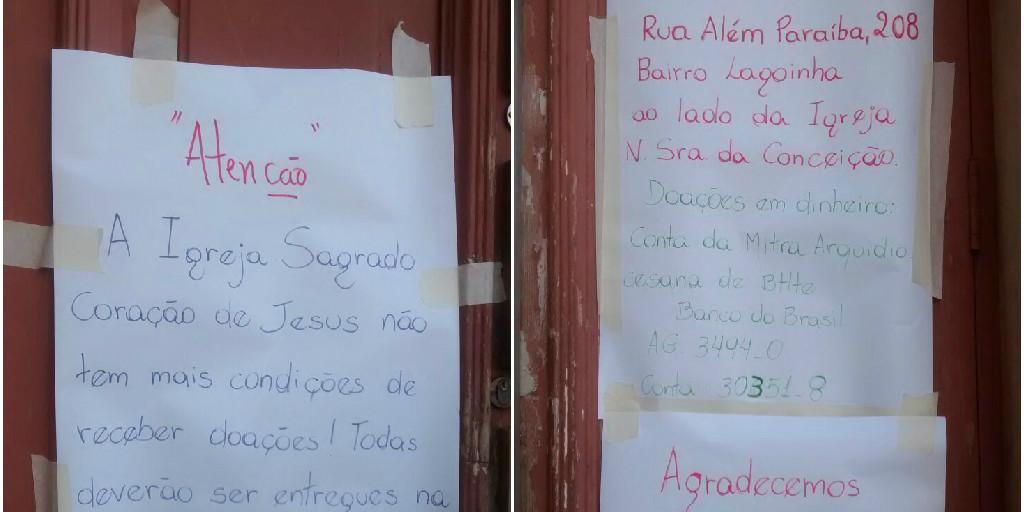 "Atenção"
A Igreja Sagrado
Coração de Jesus não
tem mais condições de
receber doações! Todas
deverão ser entregues na
Rua Além Paraíba, 208
Bairro Lagoinha
ao lado da Igreja
N. Sra. da Conceição.
Doações em dinheiro:
Conta da Mitra Arquidio
cesana de BHte
Banco do Brasil
AG. 3494_0
Conta 30351_8
Agradecemos